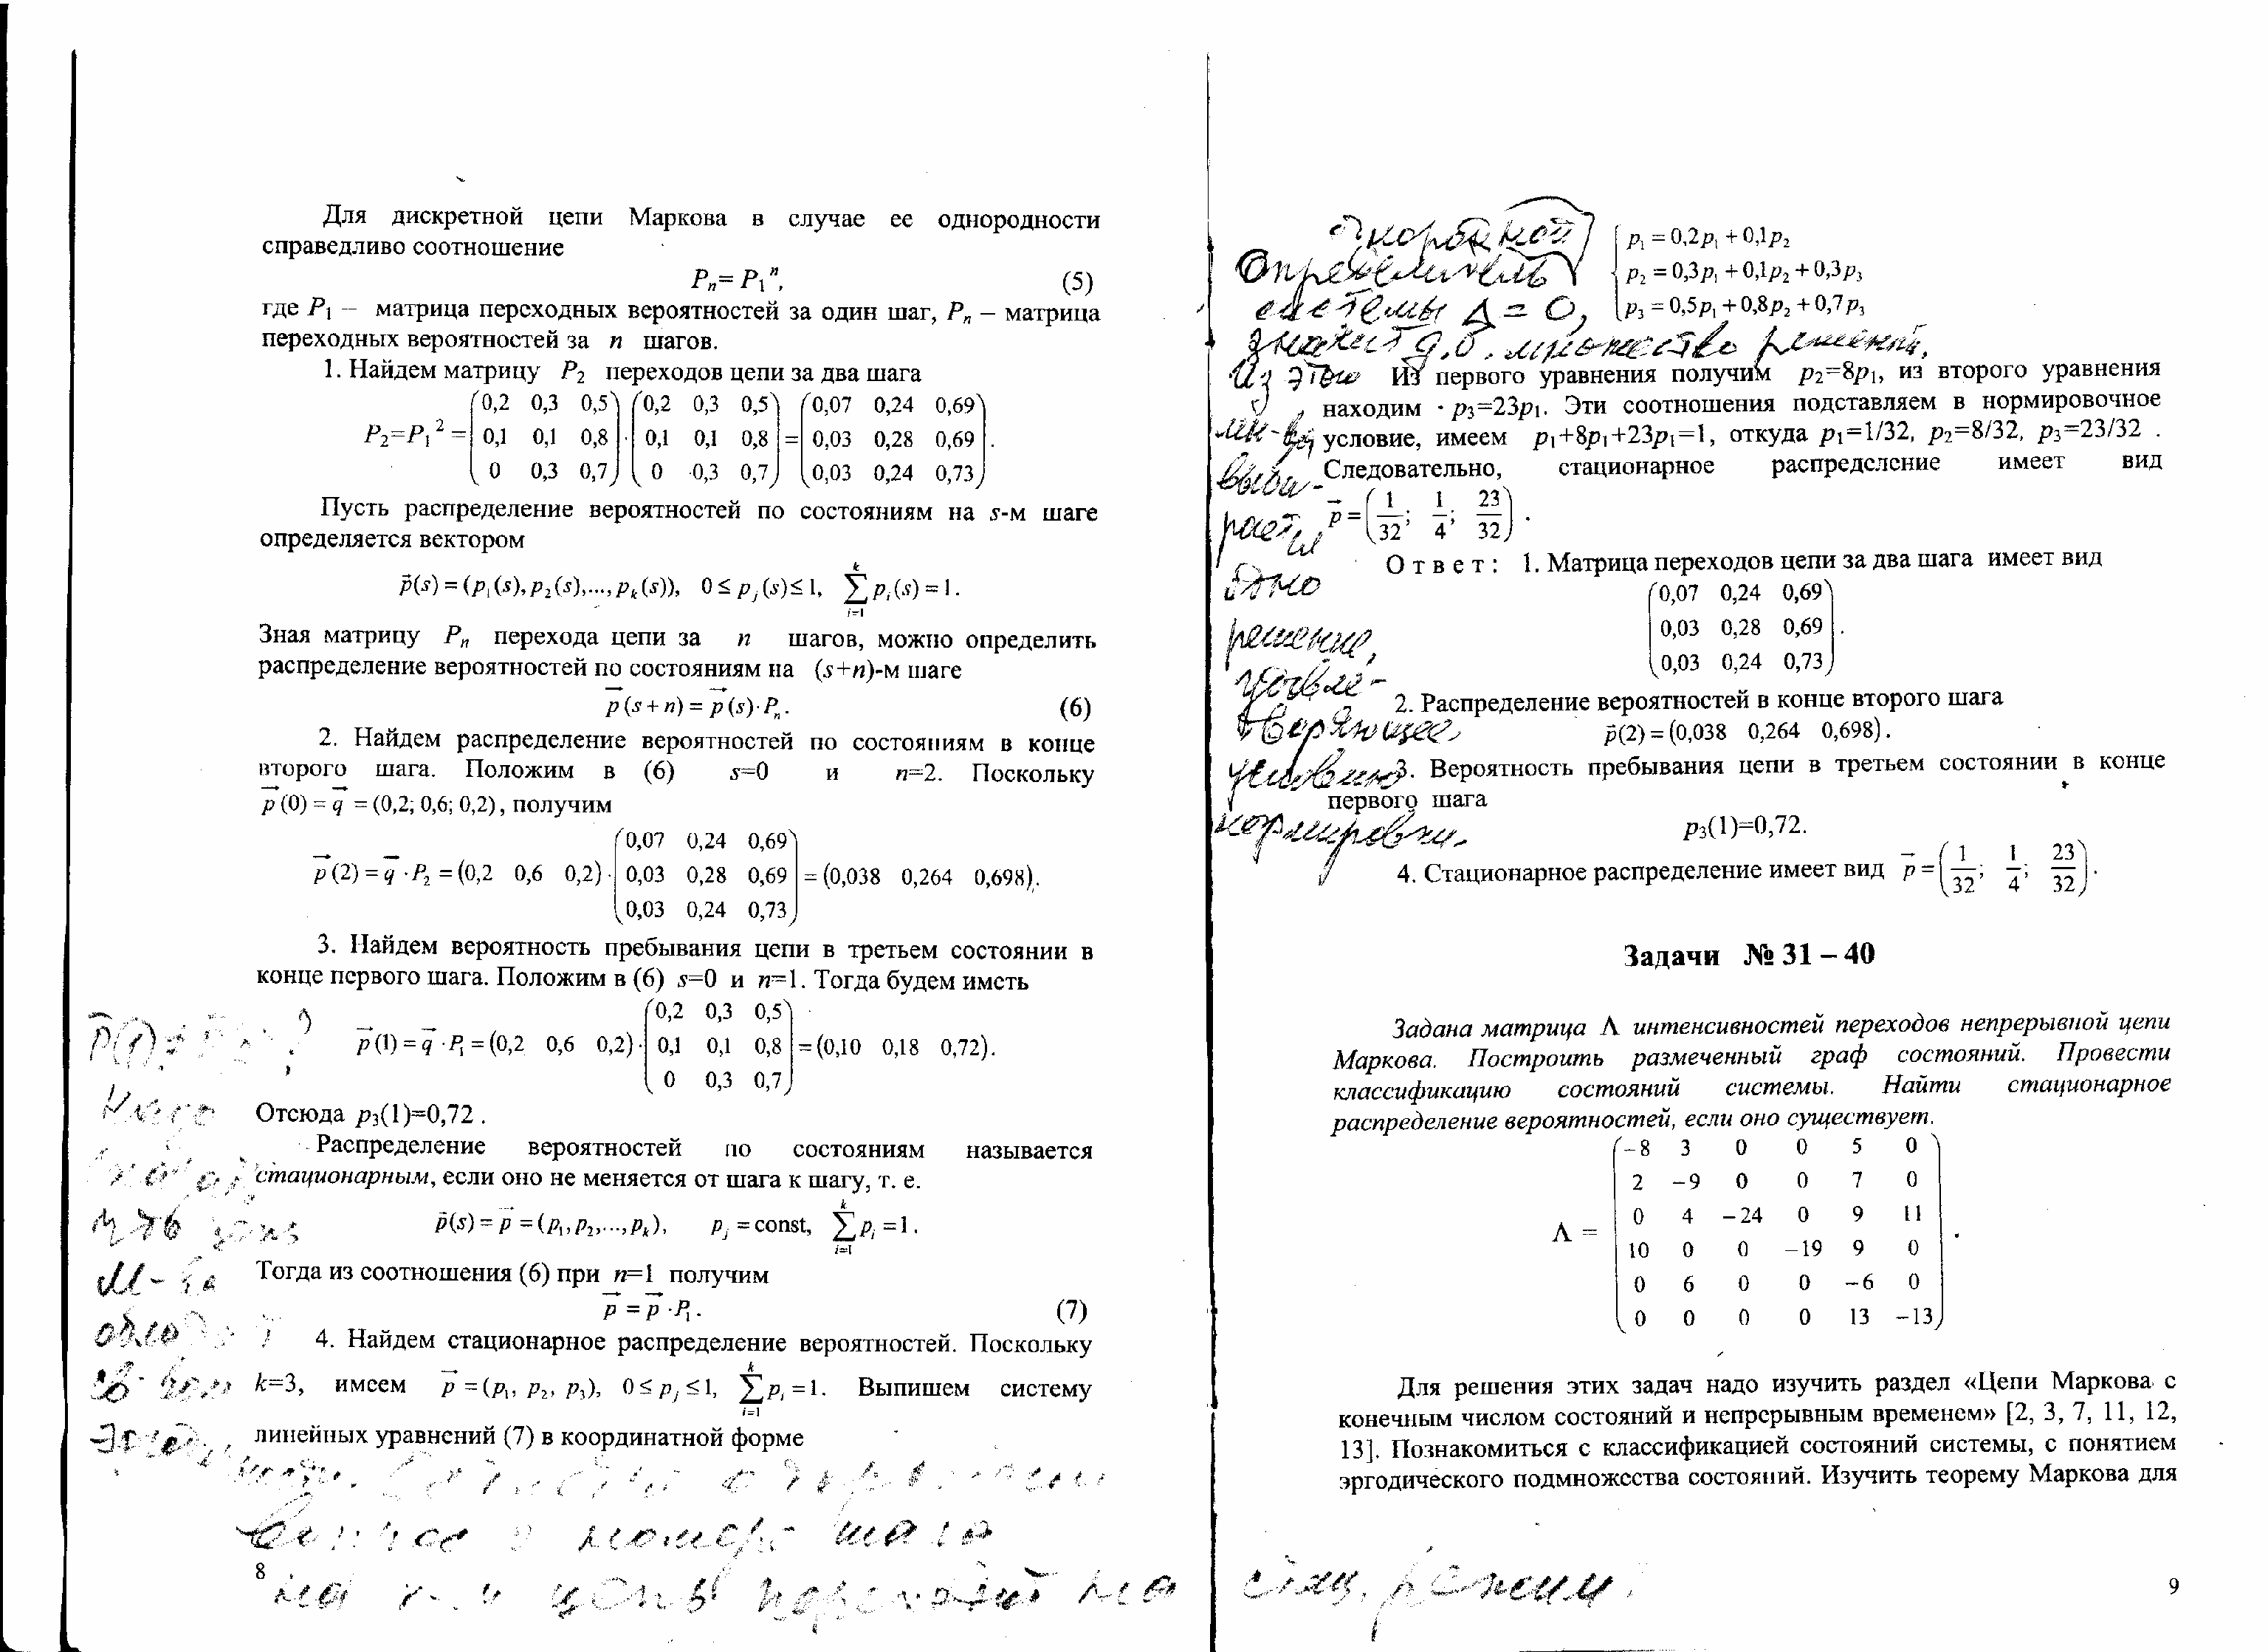 Для дискретной цепи Маркова в случае ее однородности
справедливо соотношение
Pₙ= P₁ⁿ, (5)
где P₁ – матрица переходных вероятностей за один шаг, Pₙ – матрица
переходных вероятностей за n шагов.
1. Найдем матрицу P₂ переходов цепи за два шага
P₂=P₁² = (0,2 0,3 0,5; 0,1 0,1 0,8; 0 0,3 0,7) · (0,2 0,3 0,5; 0,1 0,1 0,8; 0 0,3 0,7) = (0,07 0,24 0,69; 0,03 0,28 0,69; 0,03 0,24 0,73).
Пусть распределение вероятностей по состояниям на s-м шаге
определяется вектором
p⃗(s) = (p₁(s), p₂(s),..., pₖ(s)), 0 ≤ pⱼ(s) ≤ 1, ∑ᵢ₌₁ᵏ pᵢ(s) = 1.
Зная матрицу Pₙ перехода цепи за n шагов, можно определить
распределение вероятностей по состояниям на (s+n)-м шаге
p⃗(s + n) = p⃗(s)·Pₙ. (6)
2. Найдем распределение вероятностей по состояниям в конце
второго шага. Положим в (6) s=0 и n=2. Поскольку
p⃗(0) = q⃗ = (0,2; 0,6; 0,2), получим
p⃗(2) = q⃗ · P₂ = (0,2 0,6 0,2) · (0,07 0,24 0,69; 0,03 0,28 0,69; 0,03 0,24 0,73) = (0,038 0,264 0,698).
3. Найдем вероятность пребывания цепи в третьем состоянии в
конце первого шага. Положим в (6) s=0 и n=1. Тогда будем иметь
p⃗(1) = q⃗ · P₁ = (0,2 0,6 0,2) · (0,2 0,3 0,5; 0,1 0,1 0,8; 0 0,3 0,7) = (0,10 0,18 0,72).
Отсюда p₃(1)=0,72 .
Распределение вероятностей по состояниям называется
стационарным, если оно не меняется от шага к шагу, т. е.
p⃗(s) = p⃗ = (p₁, p₂,..., pₖ), pⱼ = const, ∑ᵢ₌₁ᵏ pᵢ = 1.
Тогда из соотношения (6) при n=1 получим
p⃗ = p⃗ · P₁. (7)
4. Найдем стационарное распределение вероятностей. Поскольку
k=3, имеем p⃗ = (p₁, p₂, p₃), 0 ≤ pⱼ ≤ 1, ∑ᵢ₌₁ᵏ pᵢ = 1. Выпишем систему
линейных уравнений (7) в координатной форме
номер шага
8
на
p₁ = 0,2p₁ + 0,1p₂
p₂ = 0,3p₁ + 0,1p₂ + 0,3p₃
p₃ = 0,5p₁ + 0,8p₂ + 0,7p₃
Определитель
системы Δ = 0,
значит д.б. множество решений,
Из этого
мн-ва
выби-
раем
одно
решение,
удовле-
творяющее
условию
нормировки.
Из первого уравнения получим p₂=8p₁, из второго уравнения
находим p₃=23p₁. Эти соотношения подставляем в нормировочное
условие, имеем p₁+8p₁+23p₁=1, откуда p₁=1/32, p₂=8/32, p₃=23/32 .
Следовательно, стационарное распределение имеет вид
p⃗ = (1/32; 1/4; 23/32).
Ответ: 1. Матрица переходов цепи за два шага имеет вид
(0,07 0,24 0,69; 0,03 0,28 0,69; 0,03 0,24 0,73).
2. Распределение вероятностей в конце второго шага
p⃗(2) = (0,038 0,264 0,698).
3. Вероятность пребывания цепи в третьем состоянии в конце
первого шага
p₃(1)=0,72.
4. Стационарное распределение имеет вид p⃗ = (1/32; 1/4; 23/32).
Задачи № 31 – 40
Задана матрица Λ интенсивностей переходов непрерывной цепи
Маркова. Построить размеченный граф состояний. Провести
классификацию состояний системы. Найти стационарное
распределение вероятностей, если оно существует.
-8 3 0 0 5 0
2 -9 0 0 7 0
0 4 -24 0 9 11
Λ =
10 0 0 -19 9 0
0 6 0 0 -6 0
0 0 0 0 13 -13
Для решения этих задач надо изучить раздел «Цепи Маркова с
конечным числом состояний и непрерывным временем» [2, 3, 7, 11, 12,
13]. Познакомиться с классификацией состояний системы, с понятием
эргодического подмножества состояний. Изучить теорему Маркова для
стац. режим.
9